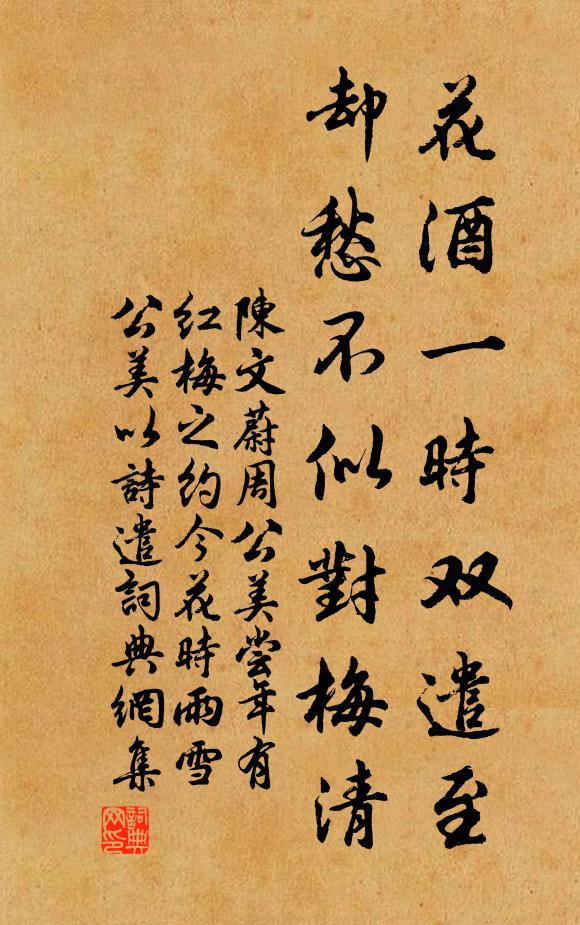 花酒一時双遣至
却愁不似對梅清
陳文蔚周公美嘗年有
紅梅之約今花時雨雪
公美以詩遣詞典網集
詞典
网印